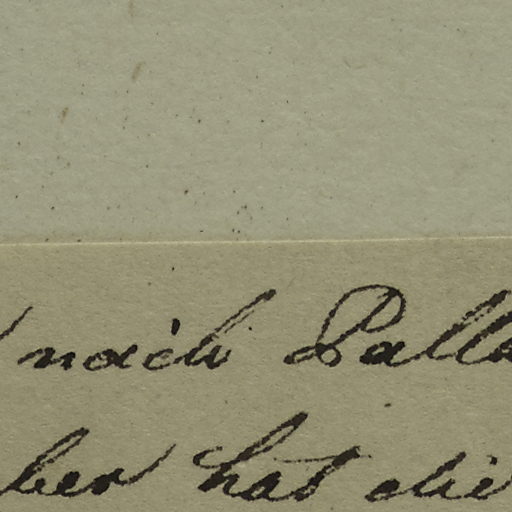 nach Palla
ber hat die